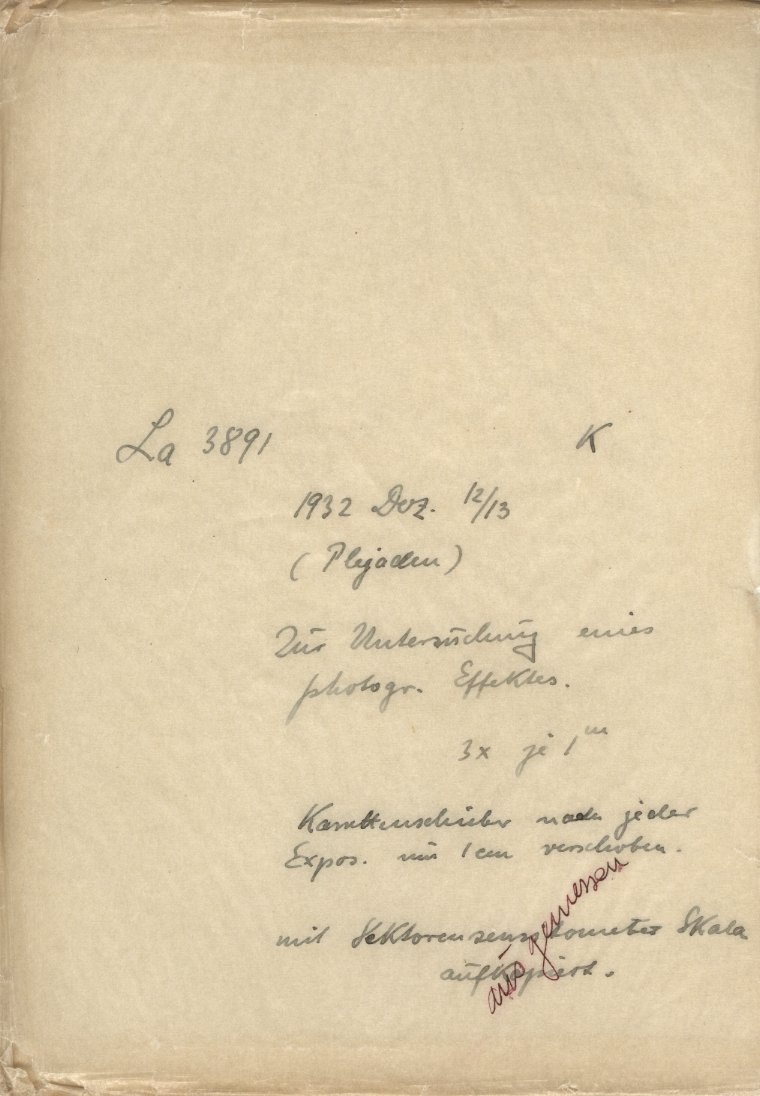 La 3891 K
1932 Dez. 12/13
(Plejaden)
Zur Untersuchung eines
photogr. Effektes.
3x je 1ᵐ
Kassettenschieber nach jeder
Expos. um 1 cm verschoben.
mit Sektorensensitometer Skala
aufkopiert.
ausgemessen